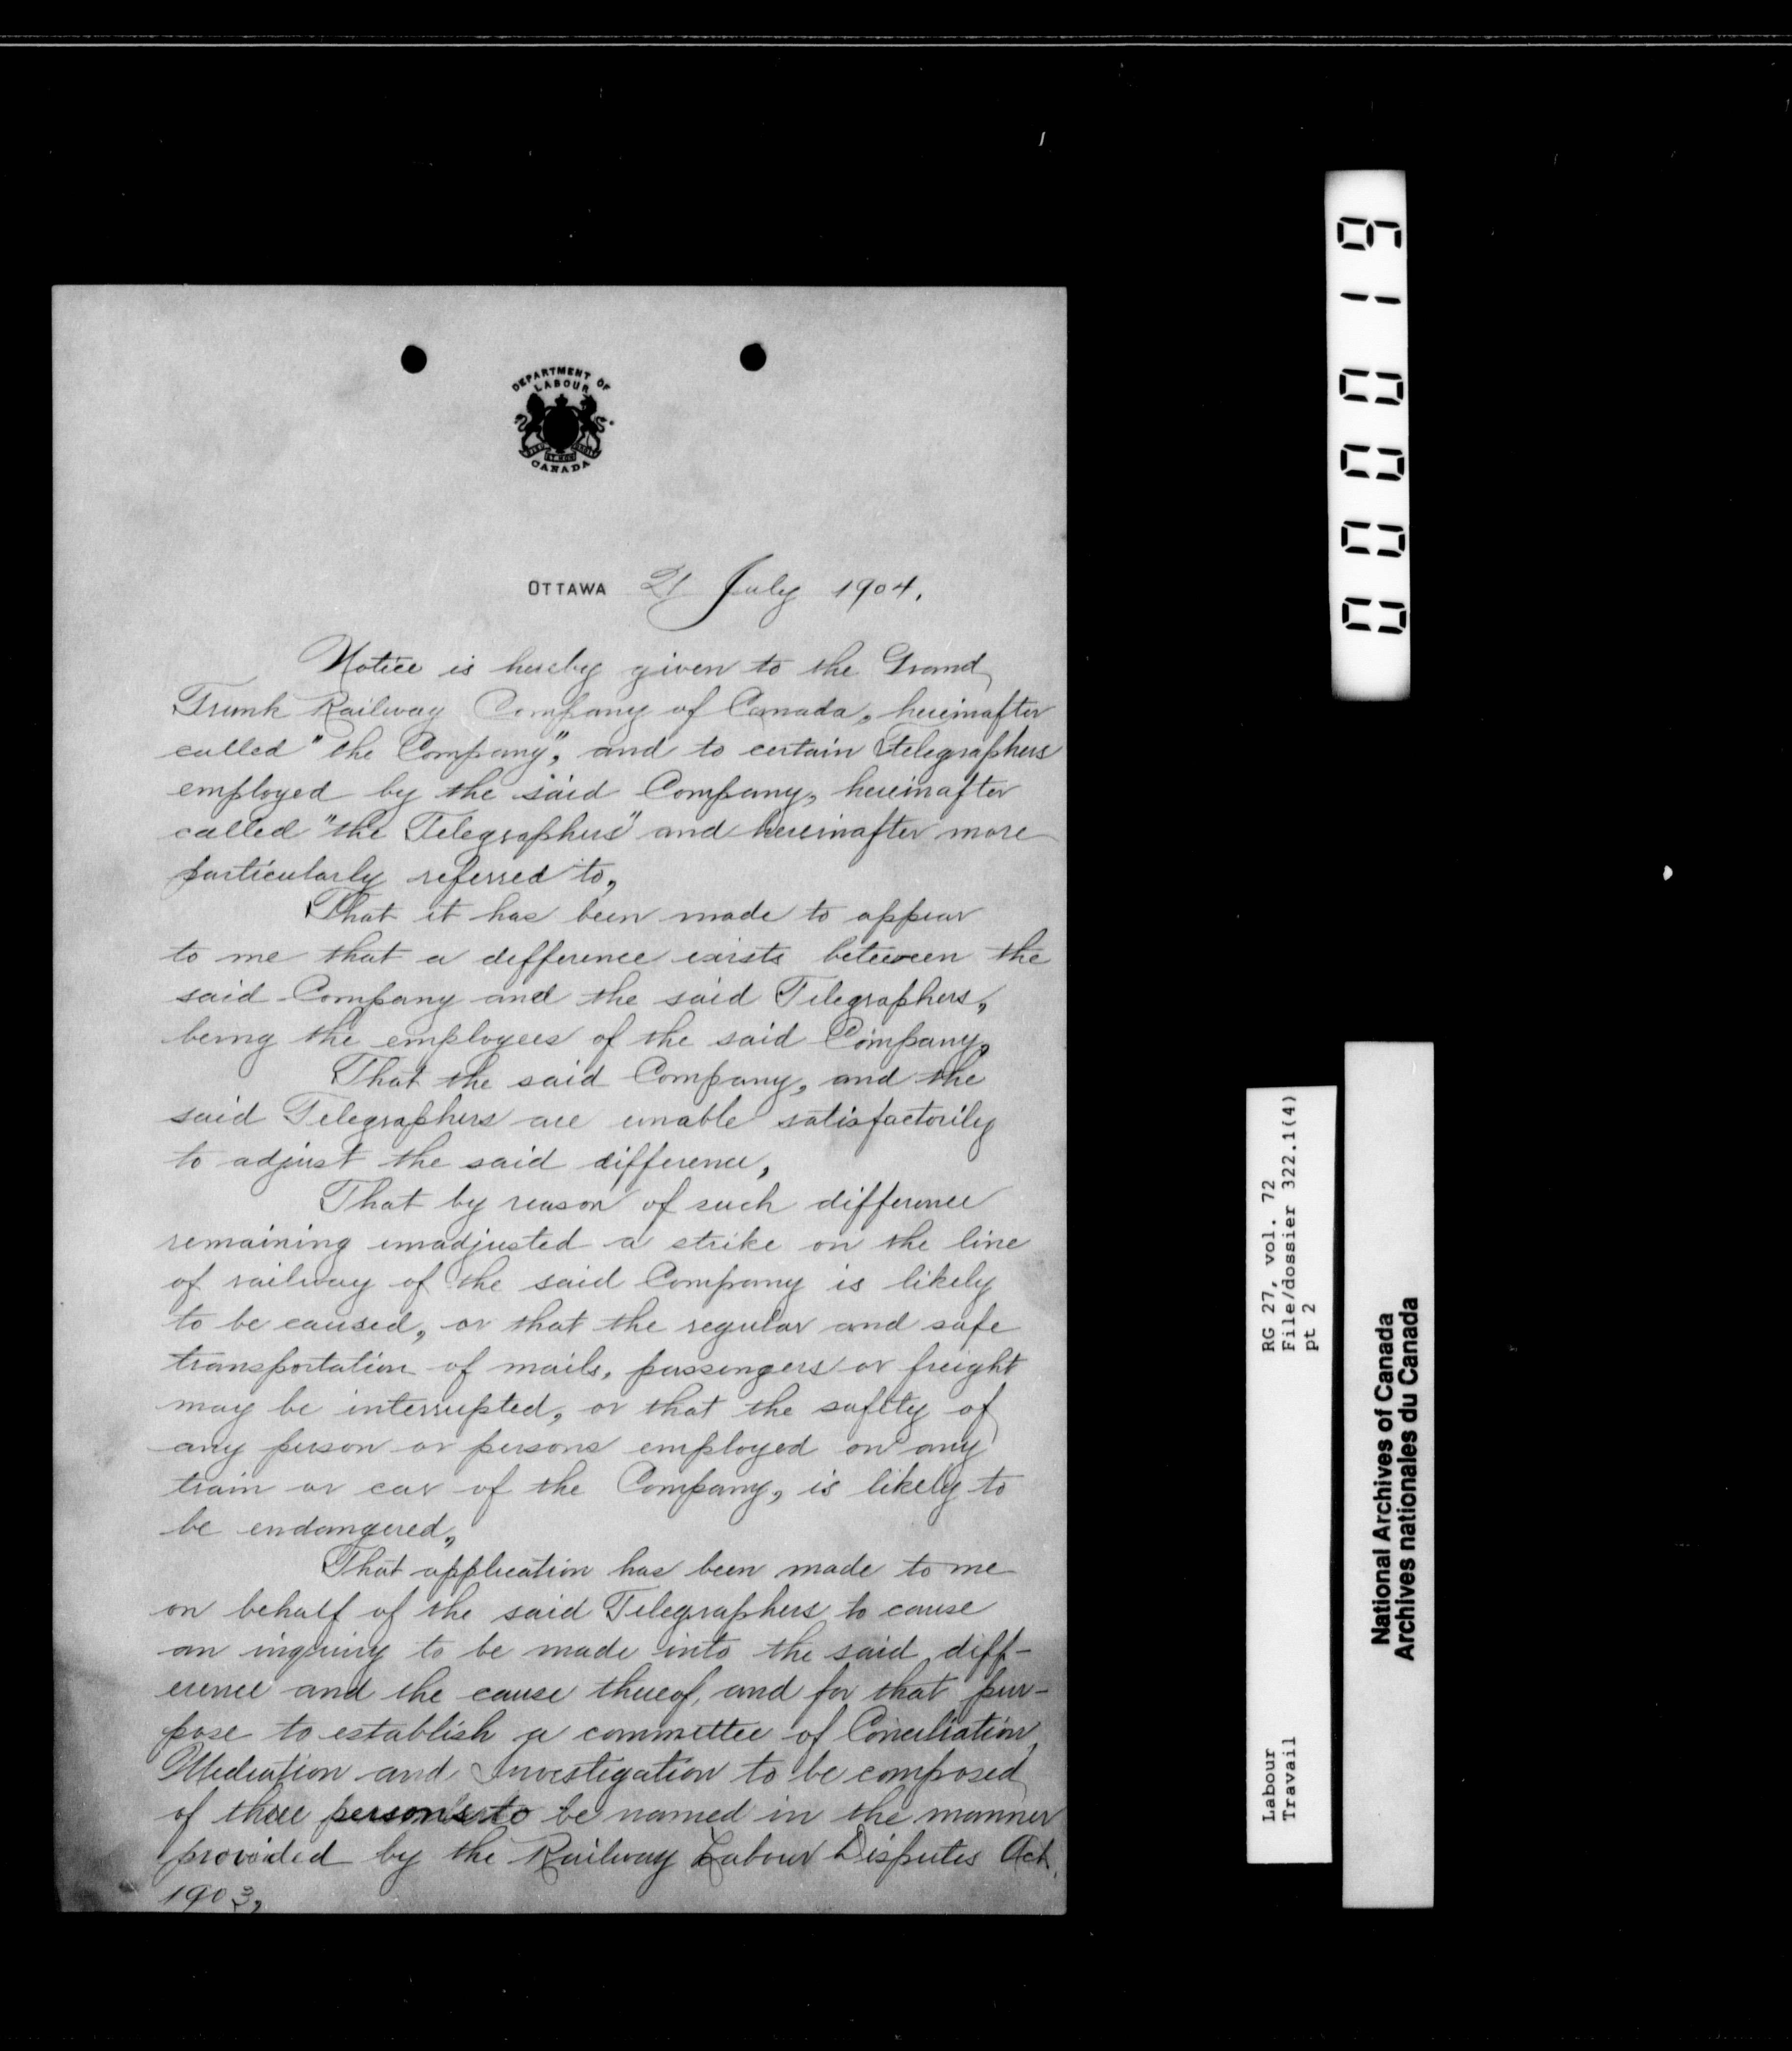 DEPARTMENT OF
LABOUR
CANADA
OTTAWA 21 July 1904.
Notice is hereby given to the Grand
Trunk Railway Company of Canada, hereinafter
called "the Company", and to certain telegraphers
employed by the said Company, hereinafter
called "the Telegraphers" and hereinafter more
particularly referred to,
That it has been made to appear
to me that a difference exists between the
said Company and the said Telegraphers,
being the employees of the said Company,
That the said Company, and the
said Telegraphers are unable satisfactorily
to adjust the said difference,
That by reason of such difference
remaining unadjusted a strike on the line
of railway of the said Company is likely
to be caused, or that the regular and safe
transportation of mails, passengers or freight
may be interrupted, or that the safety of
any person or persons employed on any
train or car of the Company, is likely to
be endangered,
That application has been made to me
on behalf of the said Telegraphers to cause
an inquiry to be made into the said diff-
erence and the cause thereof, and for that pur-
pose to establish a committee of Conciliation,
Mediation and Investigation to be composed
of three persons to be named in the manner
provided by the Railway Labour Disputes Act,
1903,
000019
RG 27, vol. 72
File/dossier 322.1(4)
pt 2
Labour
Travail
National Archives of Canada
Archives nationales du Canada